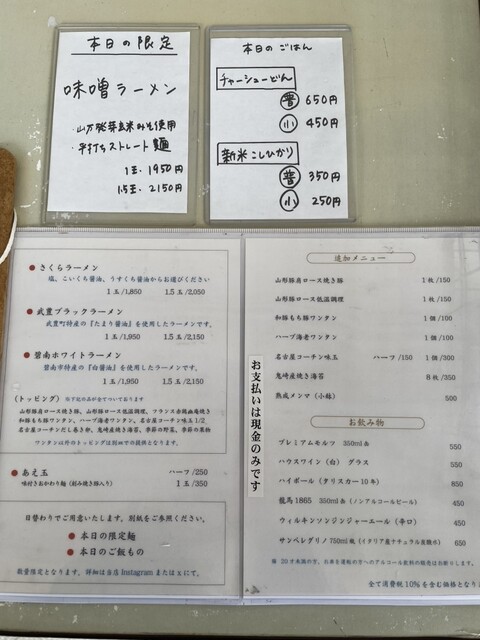 本日の限定
味噌ラーメン
・平打ちストレート麺
1玉・1950円
1.5玉・2150円
本日のごはん
チャーシューどん
普 650円
小 450円
新米こしひかり
普 350円
小 250円
さくらラーメン
塩、こいくち醤油、うすくち醤油からお選びください
1玉/1,850 1.5玉/2,050
武豊ブラックラーメン
武豊町特産の『たまり醤油』を使用したラーメンです。
1玉/1,950 1.5玉/2,150
碧南ホワイトラーメン
碧南市特産の『白醤油』を使用したラーメンです。
1玉/1,950 1.5玉/2,150
(トッピング) 下記の品が全てのっております
山形豚肩ロース焼き豚、山形豚ロース低温調理、フランス赤鶏幽庵焼き
和豚もち豚ワンタン、ハーブ海老ワンタン、名古屋コーチン味玉1/2
名古屋コーチンだし巻き卵、鬼崎産焼き海苔、季節の野菜、季節の果物
ワンタン以外のトッピングは別皿での提供となります。
あえ玉 ハーフ/250
味付きおかわり麺(刻み焼き豚入り) 1玉/350
日替わりでご用意いたします。別紙をご参照ください。
本日の限定麺
本日のご飯もの
数量限定となります。詳細は当店InstagramまたはXにて。
お支払いは現金のみです
追加メニュー
山形豚肩ロース焼き豚 1枚/150
山形豚ロース低温調理 1枚/150
和豚もち豚ワンタン 1個/100
ハーブ海老ワンタン 1個/100
名古屋コーチン味玉 ハーフ/150 1個/300
鬼崎産焼き海苔 8枚/350
熟成メンマ(小鉢) 500
お飲み物
プレミアムモルツ 350ml缶 550
ハウスワイン(白) グラス 550
ハイボール(タリスカー10年) 850
龍馬1865 350ml缶(ノンアルコールビール) 450
ウィルキンソンジンジャーエール(辛口) 450
サンペレグリノ750ml瓶(イタリア産ナチュラル炭酸水) 650
20才未満の方、お車を運転の方へのアルコール飲料の販売はお断りします。
全て消費税10%を含む価格となりま